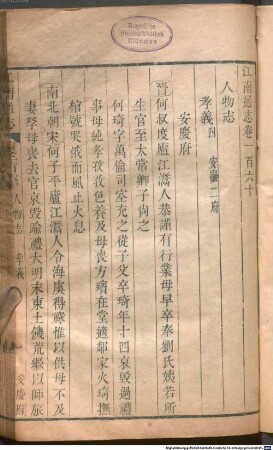 江南通志卷一百六十
人物志
孝義四 安徽二府
安慶府
晉何叔度廬江灊人恭謹有行業母早卒奉劉氏姨若所
生官至太常卿子尚之
何琦字萬倫司空充之從子父卒琦年十四哀毀過禮
事母純孝孜孜色養及母喪方殯在堂適鄰家火琦撫
棺號哭俄而風止火息
南北朝宋何子平廬江灊人令海虞得祿惟以供母不及
妻孥母喪去官哀毀踰禮大明末東土饑荒繼以師旅
人物志 孝義 安慶府
Bayerische
Staatsbibliothek
München